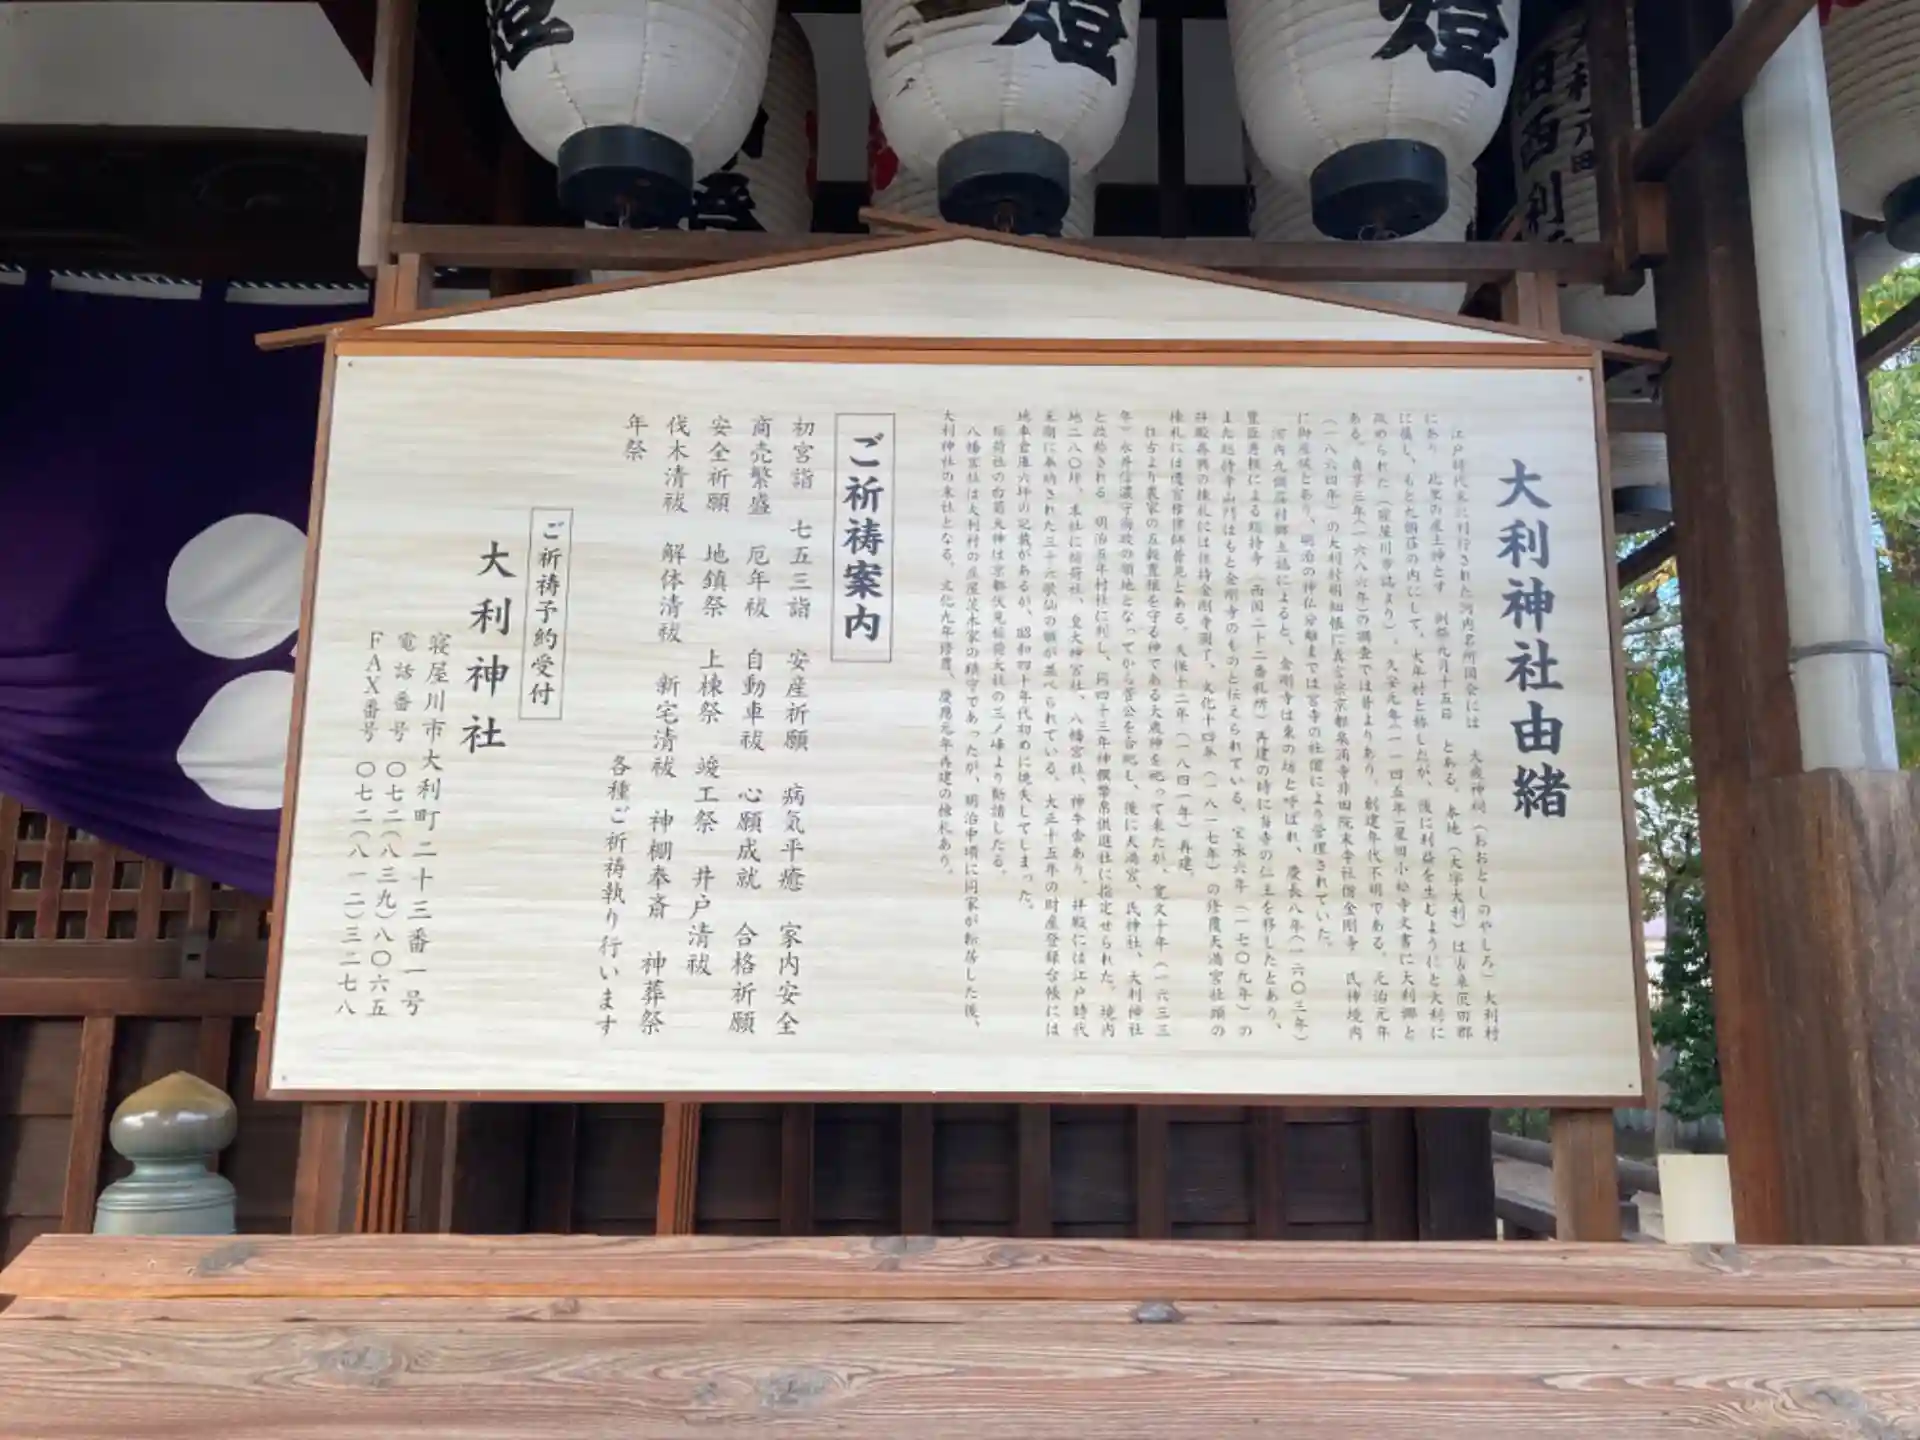 大利神社由緒
江戸時代末に刊行された河内名所図会には 大歳神祠（おおとしのやしろ）大利村
にあり 此里の産土神とす 例祭九月十五日 とある。本地（大字大利）は古来茨田郡
に属し、もと九個荘の内にして、大年村と称したが、後に利益を生むようにと大利に
改められた（寝屋川市誌より）。久安元年（一一四五年）星田小松寺文書に大利郷と
ある。貞享三年（一六八六年）の調査では昔よりあり、創建年代不明である。元治元年
（一八六四年）の大利村明細帳に真言宗京都泉涌寺非田院末寺社僧金剛寺 氏神境内
に御座候とあり、明治の神仏分離までは宮寺の社僧により管理されていた。
河内九個荘村郷土誌によると、金剛寺は東の坊と呼ばれ、慶長八年（一六〇三年）
豊臣秀頼による総持寺（西国二十二番札所）再建の時に当寺の仁王を移したとあり、
また総持寺山門はもと金剛寺のものと伝えられている。宝永六年（一七〇九年）の
拝殿再興の棟札には住持金剛寺園了、文化十四年（一八一七年）の修覆天満宮社頭の
棟札には遷宮修律師普見とある。天保十二年（一八四一年）再建。
往古より農家の五穀豊穣を守る神である大歳神を祀って来たが、寛文十年（一六三三
年）永井信濃守尚政の領地となってから菅公を合祀し、後に天満宮、氏神社、大利神社
と改称される。明治五年村社に列し、同四十三年神饌幣帛供進社に指定せられた。境内
地二八〇坪、末社に稲荷社、皇大神宮社、八幡宮社、神牛舎あり、拝殿には江戸時代
末期に奉納された三十六歌仙の額が並べられている。大正十五年の財産登録台帳には
地車倉庫六坪の記載があるが、昭和四十年代初めに焼失してしまった。
稲荷社の白菊大神は京都伏見稲荷大社の三ノ峰より勧請したる。
八幡宮社は大利村の庄屋茨木家の鎮守であったが、明治中頃に同家が転居した後、
大利神社の末社となる。文化九年修覆、慶應元年再建の棟札あり。
ご祈祷案内
初宮詣 七五三詣 安産祈願 病気平癒 家内安全
商売繁盛 厄年祓 自動車祓 心願成就 合格祈願
安全祈願 地鎮祭 上棟祭 竣工祭 井戸清祓
伐木清祓 解体清祓 新宅清祓 神棚奉斎 神葬祭
年祭
各種ご祈祷執り行います
ご祈祷予約受付
大利神社
寝屋川市大利町二十三番一号
電話番号 〇七二（八三九）八〇六五
ＦＡＸ番号 〇七二（八一二）三二七八
燈
燈